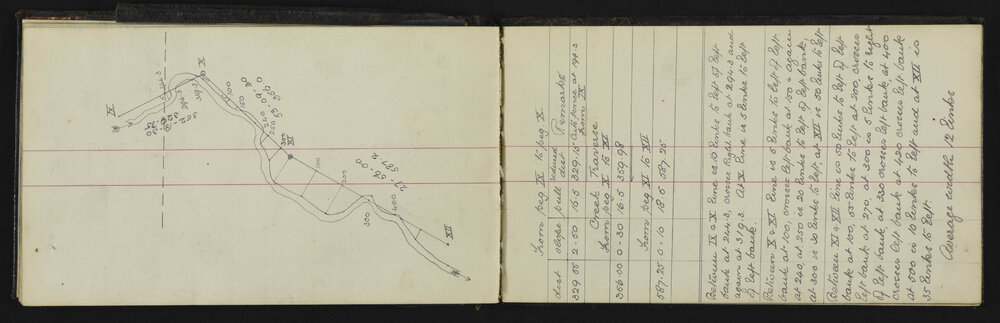 From peg IX to peg X
dist slope pull reduced dist Remarks
329.55 2-50 16.5 329.15
from IX
Creek Traverse
From peg X to XI
356.00 0-30 16.5 359.98
From peg XI to XII
587.25 0-10 18.5 587.25
Between IX & X line is 10 links to left of left
bank at 244.3, crosses right bank at 294.3 and
again at 319.3. At X line is 5 links to left
of left bank.
Between X & XI line is 5 links to left of left
bank at 100, crosses left bank at 150 & again
at 240, at 250 is 20 links to left of left bank,
at 300 is 30 links to left, at XII is 50 links to left
Between XI & XII line is 60 links to left of left
bank at 100, 55 links to left at 200, crosses
left bank at 270, at 300 is 5 links to right
of left bank, at 330 crosses left bank, at 400
crosses left bank at 420 crosses left bank
at 500 is 10 links to left and at XII is
35 links to left.
Average width 12 links
IX
X
XI
XII
244.3
294.3
319.3
100
150
240.0
250
300
100
200
300
400